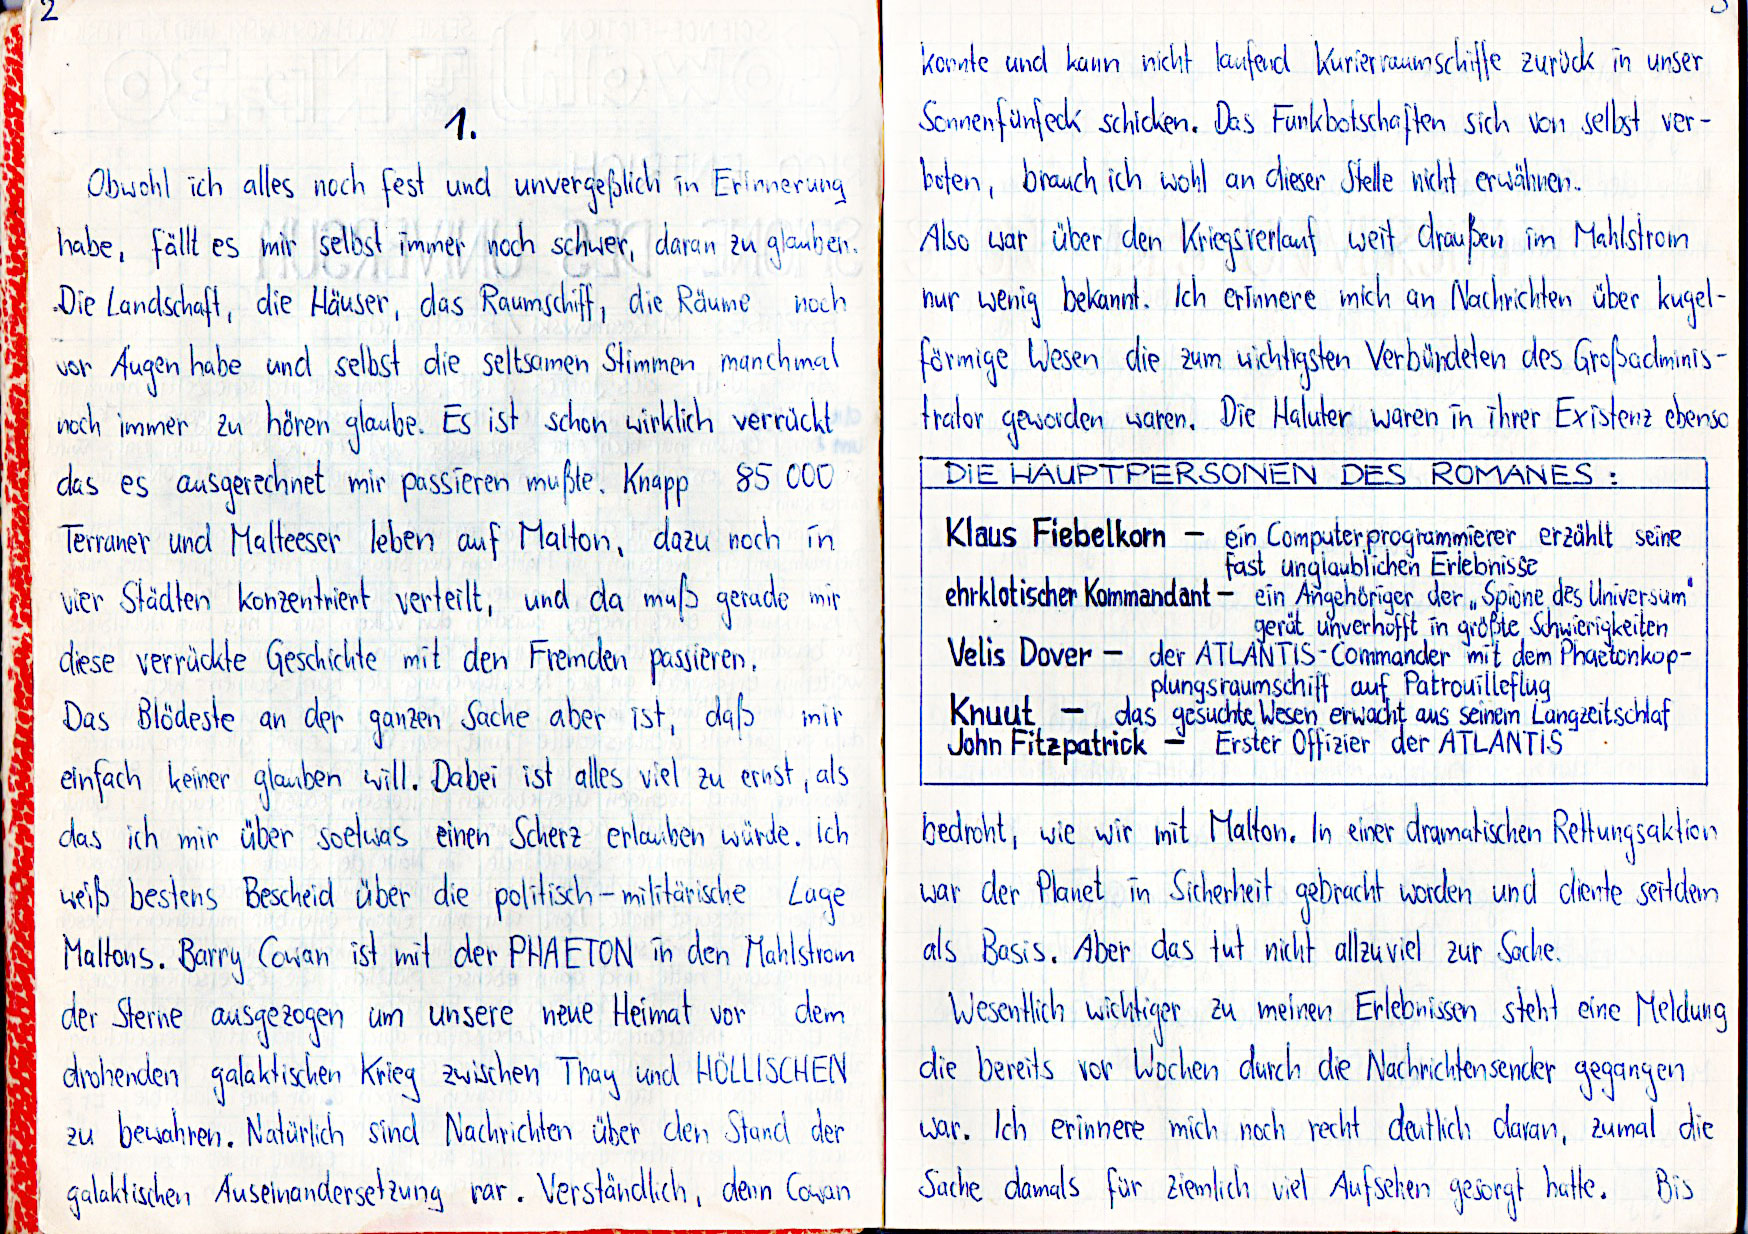 2
1.
Obwohl ich alles noch fest und unvergeßlich in Erinnerung
habe, fällt es mir selbst immer noch schwer, daran zu glauben.
Die Landschaft, die Häuser, das Raumschiff, die Räume noch
vor Augen habe und selbst die seltsamen Stimmen manchmal
noch immer zu hören glaube. Es ist schon wirklich verrückt
das es ausgerechnet mir passieren mußte. Knapp 85 000
Terraner und Malteeser leben auf Malton, dazu noch in
vier Städten konzentriert verteilt, und da muß gerade mir
diese verrückte Geschichte mit den Fremden passieren.
Das Blödeste an der ganzen Sache aber ist, daß mir
einfach keiner glauben will. Dabei ist alles viel zu ernst, als
das ich mir über soetwas einen Scherz erlauben würde. Ich
weiß bestens Bescheid über die politisch-militärische Lage
Maltons. Barry Cowan ist mit der PHAETON in den Mahlstrom
der Sterne ausgezogen um unsere neue Heimat vor dem
drohenden galaktischen Krieg zwischen Thay und HÖLLISCHEN
zu bewahren. Natürlich sind Nachrichten über den Stand der
galaktischen Auseinandersetzung rar. Verständlich, denn Cowan
3
konnte und kann nicht laufend Kurierraumschiffe zurück in unser
Sonnenfünfeck schicken. Das Funkbotschaften sich von selbst ver-
boten, brauch ich wohl an dieser Stelle nicht erwähnen.
Also war über den Kriegsverlauf weit draußen im Mahlstrom
nur wenig bekannt. Ich erinnere mich an Nachrichten über kugel-
förmige Wesen die zum wichtigsten Verbündeten des Großadminis-
trator geworden waren. Die Haluter waren in ihrer Existenz ebenso
DIE HAUPTPERSONEN DES ROMANES:
Klaus Fiebelkorn - ein Computerprogrammierer erzählt seine
fast unglaublichen Erlebnisse
ehrklotischer Kommandant - ein Angehöriger der „Spione des Universum"
gerät unverhofft in größte Schwierigkeiten
Velis Dover - der ATLANTIS-Commander mit dem Phaetonkop-
plungsraumschiff auf Patrouilleflug
Knuut - das gesuchte Wesen erwacht aus seinem Langzeitschlaf
John Fitzpatrick - Erster Offizier der ATLANTIS
bedroht, wie wir mit Malton. In einer dramatischen Rettungsaktion
war der Planet in Sicherheit gebracht worden und diente seitdem
als Basis. Aber das tut nicht allzuviel zur Sache.
Wesentlich wichtiger zu meinen Erlebnissen steht eine Meldung
die bereits vor Wochen durch die Nachrichtensender gegangen
war. Ich erinnere mich noch recht deutlich daran, zumal die
Sache damals für ziemlich viel Aufsehen gesorgt hatte. Bis